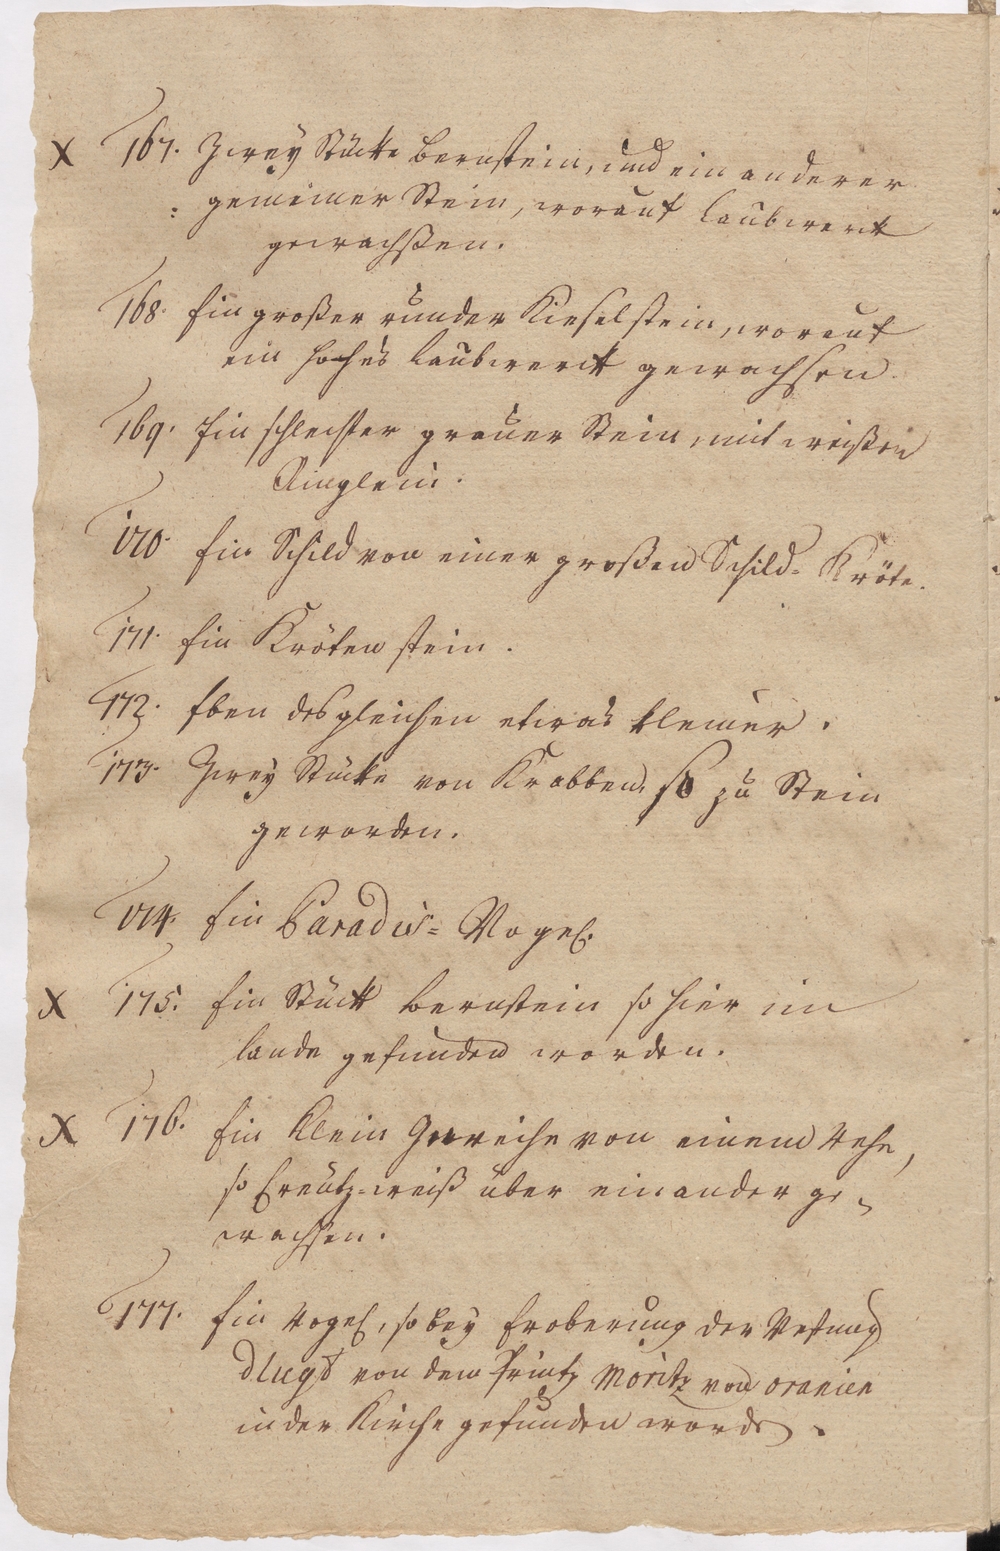 X 167. Zwey Stücke Bernstein, und ein anderer
gemeiner Stein, worauf Laubwerck
gewachßen.
168. Ein großer runder Kieselstein, worauf
ein hohes Laubwerck gewachsen.
169. Ein schlechter grauer Stein, mit weißen
Äuglein.
170. Ein Schild von einer großen Schild= Kröte.
171. Ein Kröten stein.
172. Eben desgleichen etwas kleiner.
173. Zwey Stücke von Krabben, so zu Stein
geworden.
174. Ein Paradis= Vogel.
X 175. Ein Stück Bernstein so hier im
Lande gefunden worden.
X 176. Ein klein Geweihe von einem Rehe,
so Creutz=weiß über einander ge-
wachsen.
177. Ein Vogel, so bey Eroberung der Vestung
von dem Printz Moritz von Oranien
in der Kirche gefunden worden.